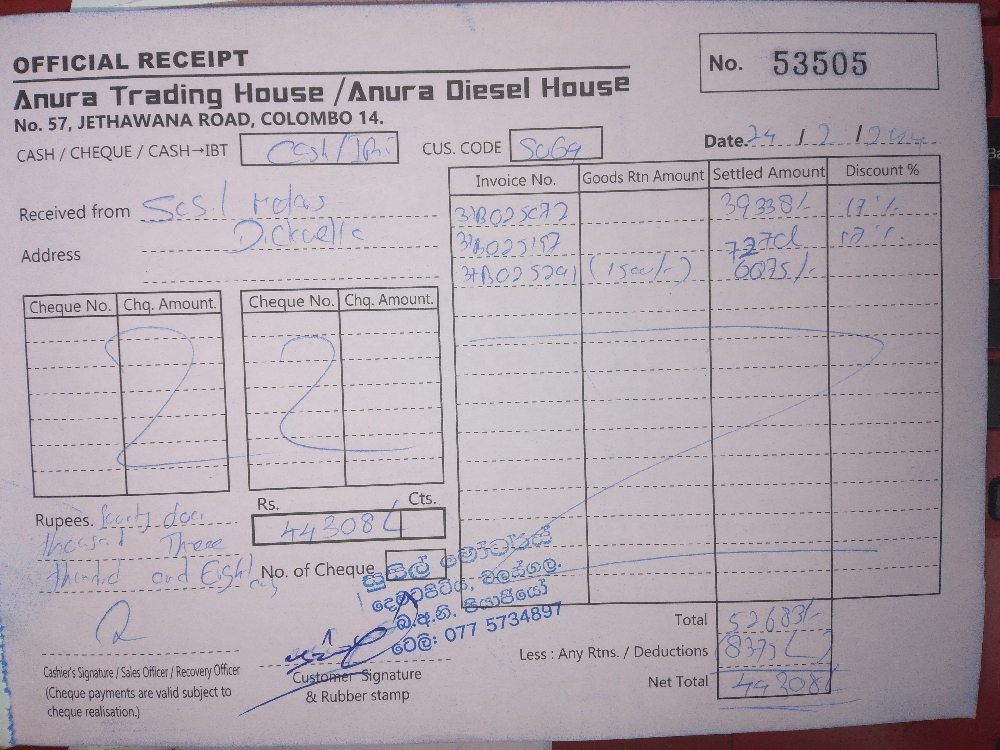 OFFICIAL RECEIPT
No. 53505
Anura Trading House / Anura Diesel House
No. 57, JETHAWANA ROAD, COLOMBO 14.
CASH / CHEQUE / CASH→IBT Cash/ CUS. CODE Date. 24 / 2 /
Invoice No. Goods Rtn Amount Settled Amount Discount %
Received from
39338/- 17%
Address Dickwella
(1500/-) 6075/-
Cheque No. Chq. Amount. Cheque No. Chq. Amount.
Rs. Cts.
Rupees. fourty four
44308/-
thousand Three
Hundred and Eight only
No. of Cheque
සුසිල් මෝටර්ස්
දෙමටපිටිය, වලස්ගල.
බී.අ.නි. පියාජියෝ
ටෙලි: 077 5734897
Total 52683/-
Less : Any Rtns. / Deductions (8375/-)
Net Total 44308/-
Cashier's Signature / Sales Officer / Recovery Officer
(Cheque payments are valid subject to
cheque realisation.)
Customer Signature
& Rubber stamp